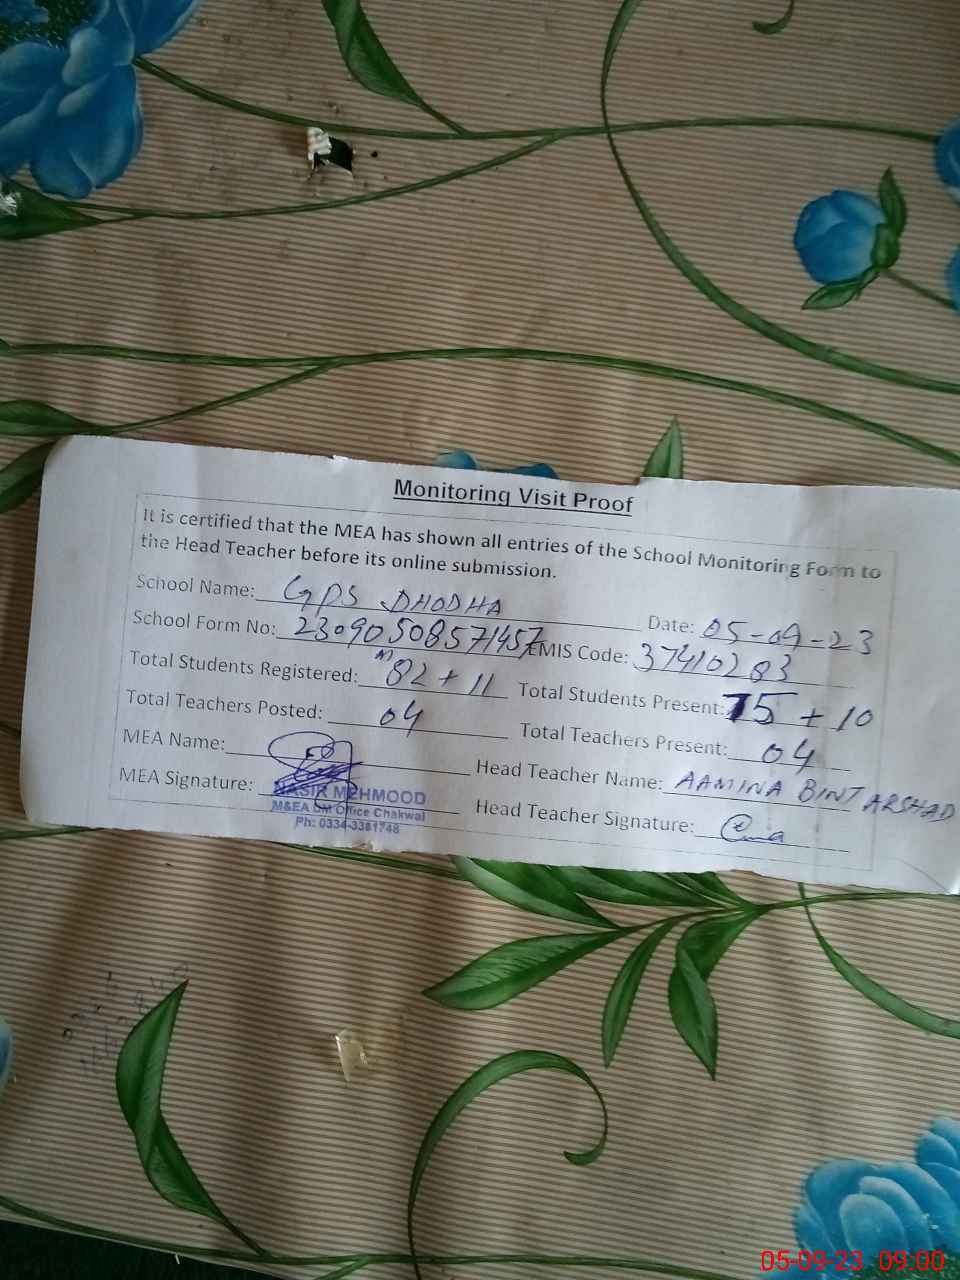 Monitoring Visit Proof
It is certified that the MEA has shown all entries of the School Monitoring Form to
the Head Teacher before its online submission.
School Name: GPS DHODHA Date: 05-09-23
School Form No: 23090508571457 EMIS Code: 37410283
Total Students Registered: 82 + 11 Total Students Present: 75 + 10
Total Teachers Posted: 04 Total Teachers Present: 04
MEA Name: Head Teacher Name: AAMINA BINT ARSHAD
MEA Signature: Head Teacher Signature:
NASIR MEHMOOD
M&EA DM Office Chakwal
Ph: 0334-3381748
05-09-23 09:00